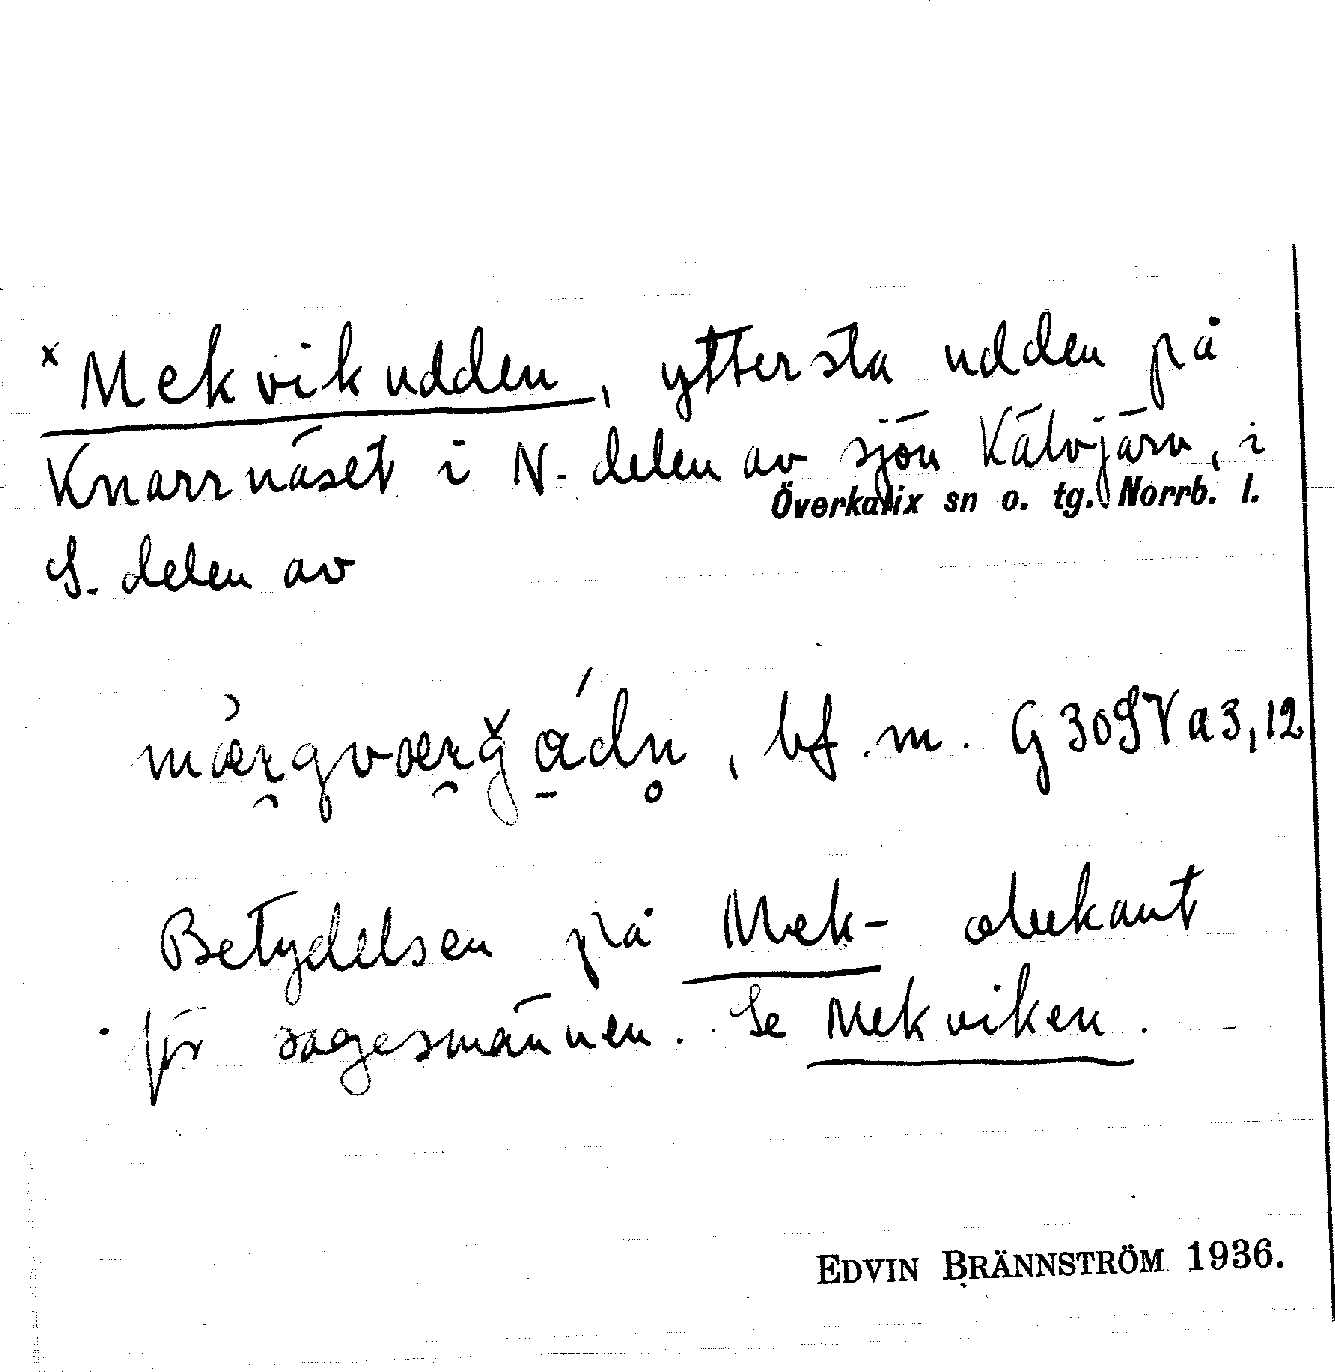 x Mekvikudden, yttersta udden på
Knarrnäset i N. delen av sjön Kälvjärv, i
S. delen av Överkalix sn o. tg. Norrb. l.
bf. m. G 30 SV a 3, 12
Betydelsen på Mek- obekant
för sagesmännen. Se Mekviken.
EDVIN BRÄNNSTRÖM 1936.